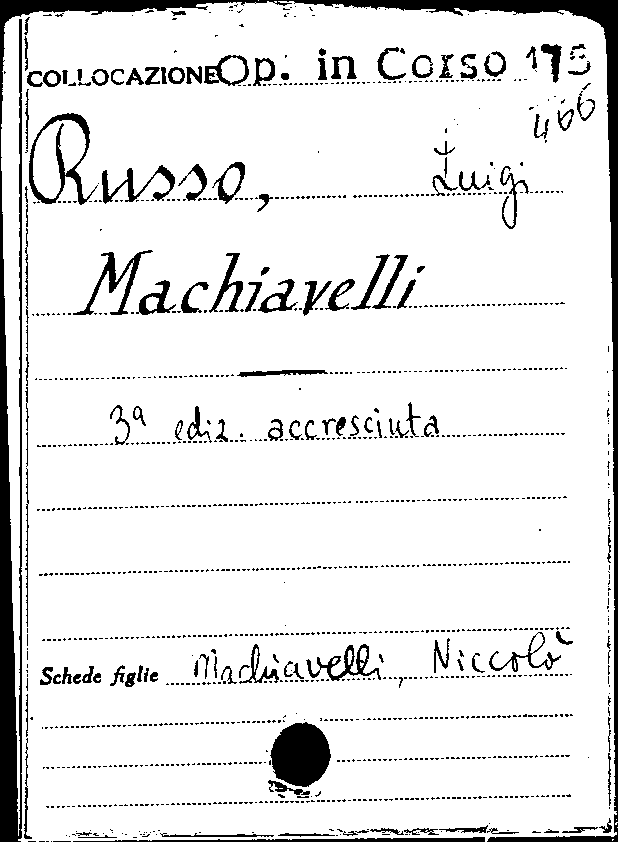 COLLOCAZIONE Op. in Corso 175
466
Russo, Luigi
Machiavelli
3ª ediz. accresciuta
Schede figlie Machiavelli, Niccolò